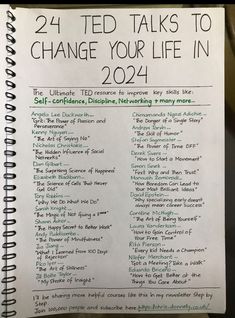 24 TED TALKS TO
CHANGE YOUR LIFE IN
2024
The Ultimate TED resource to improve key skills like:
Self-confidence, Discipline, Networking + many more...
Angela Lee Duckworth...
"Grit: The Power of Passion and
Perseverance"
Kenny Nguyen...
"The Art of Saying No"
Nicholas Christakis...
"The Hidden Influence of Social
Networks"
Dan Gilbert...
"The Surprising Science of Happiness"
Elizabeth Blackburn...
"The Science of Cells That Never
Get Old"
Tony Robbins...
"Why We Do What We Do"
Sarah Knight...
"The Magic of Not Giving a F***"
Shawn Achor...
"The Happy Secret to Better Work"
Andy Puddicombe...
"The Power of Mindfulness"
Jia Jiang...
"What I Learned from 100 Days
of Rejection"
Pico Iyer...
"The Art of Stillness"
Jill Bolte Taylor...
"My Stroke of Insight"
Chimamanda Ngozi Adichie...
"The Danger of a Single Story"
Andrew Tarvin...
"The Skill of Humor"
Stefan Sagmeister...
"The Power of Time OFF"
Derek Sivers...
"How to Start a Movement"
Simon Sinek...
"First Why and Then Trust"
Manoush Zomorodi...
"How Boredom Can Lead to
Your Most Brilliant Ideas"
David Epstein...
"Why specializing early doesn't
always mean career success"
Caroline McHugh...
"The Art of Being Yourself"
Laura Vanderkam...
"How to Gain Control of
Your Free Time"
Rita Pierson...
"Every Kid Needs a Champion"
Nilofer Merchant...
"Got a Meeting? Take a Walk"
Eduardo Briceño...
"How to Get Better at the
Things You Care About"
I'll be sharing more helpful courses like this in my newsletter Step by
Step.
Join 100,000 people and subscribe here